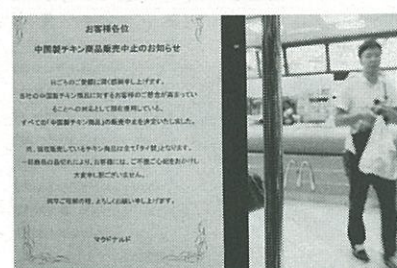 お客様各位
中国製チキン商品販売中止のお知らせ
日ごろのご愛顧に深く感謝申し上げます。
当社の中国製チキン商品に対するお客様のご懸念が高まってい
ることへの対応として現在使用している、
すべての「中国製チキン商品」の販売中止を決定いたしました。
尚、現在販売しているチキン商品は全て「タイ製」となります。
一部商品の品切れにより、お客様には、ご不便ご心配をおかけし
大変申し訳ございません。
何卒ご理解の程、よろしくお願い申し上げます。
マクドナルド